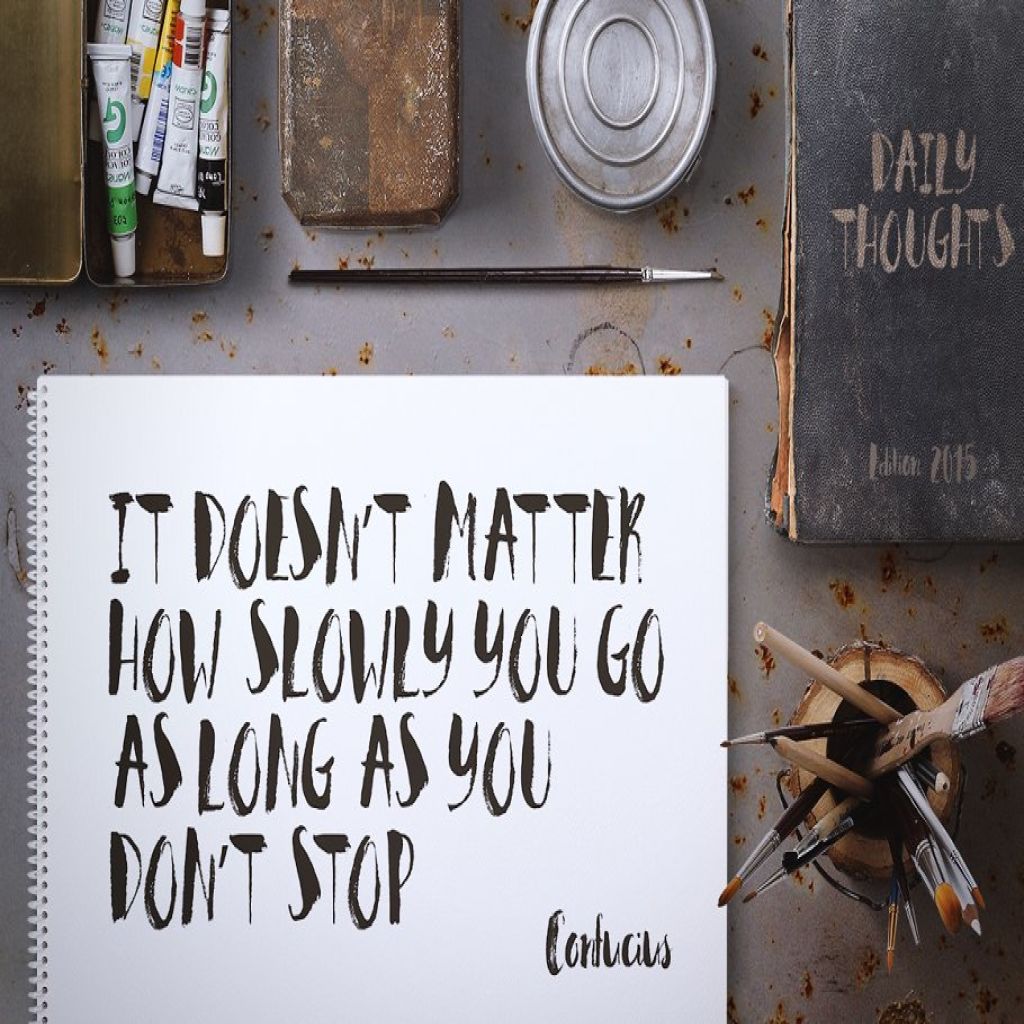 DAILY
THOUGHTS
Edition 2015
IT DOESN'T MATTER
HOW SLOWLY YOU GO
AS LONG AS YOU
DON'T STOP
Confucius